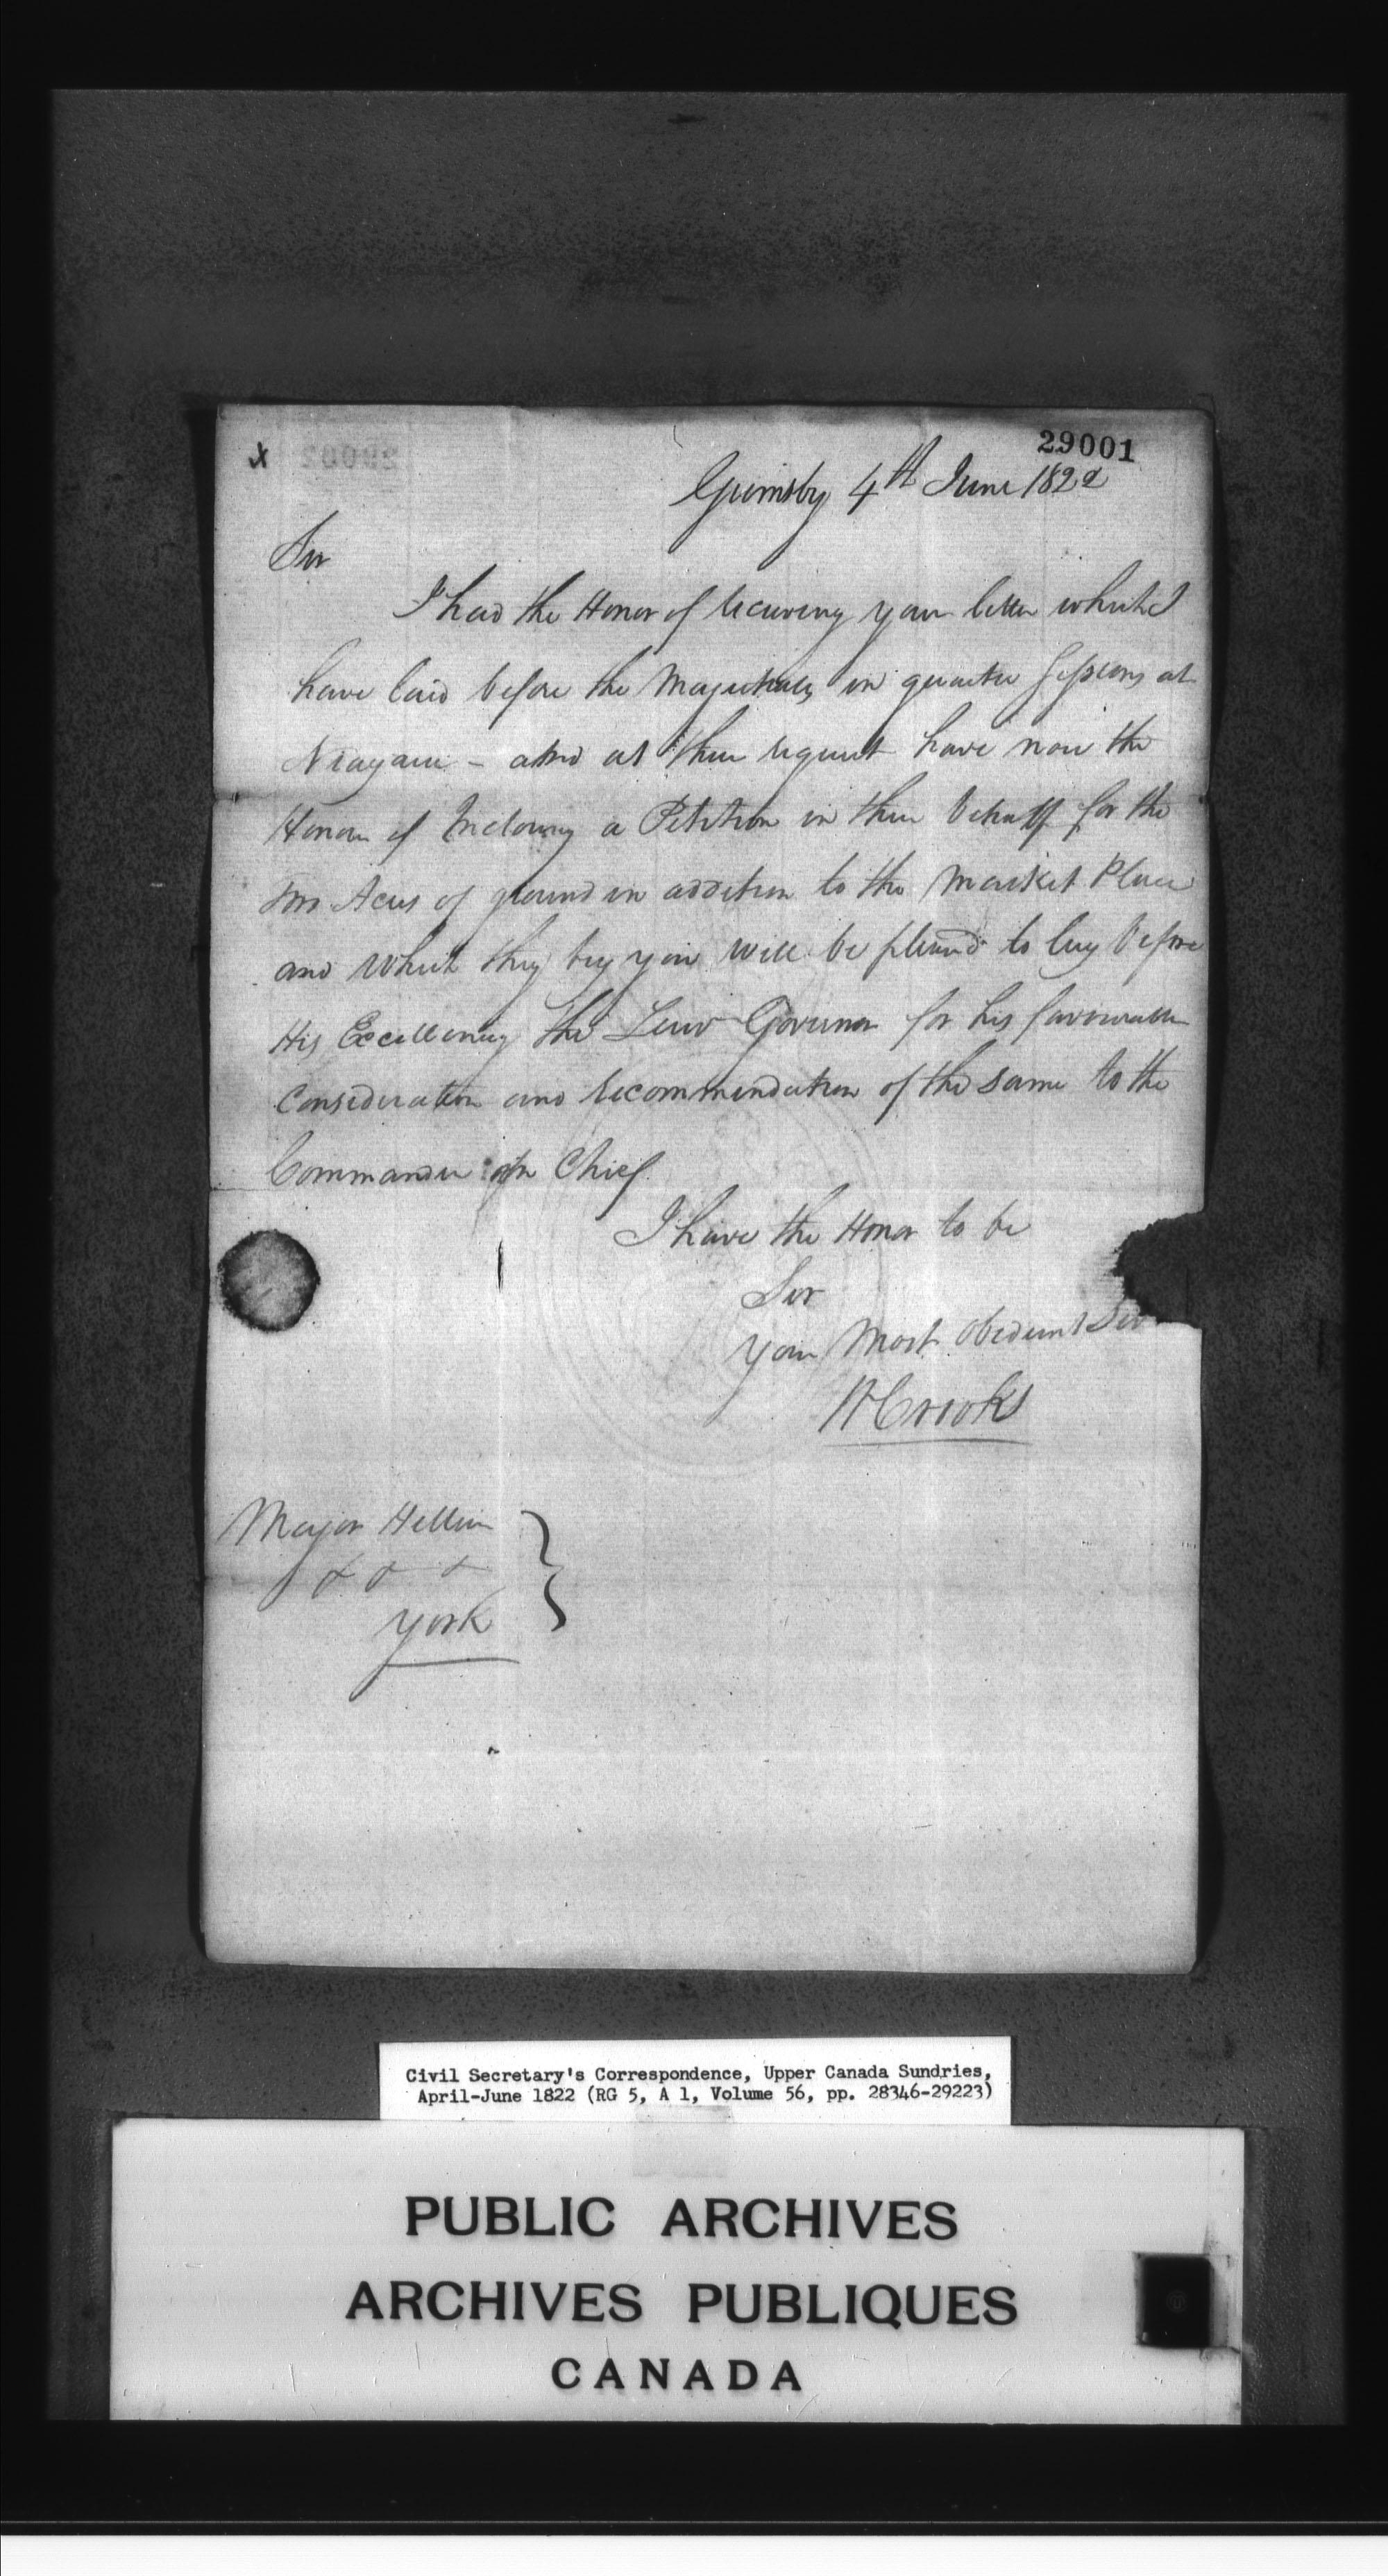 29001
Grimsby 4th June 1822
Sir
I had the Honor of receiving your letter which I
have laid before the Magistrates in quarter Sessions at
Niagara - and at their request have now the
Honor of Inclosing a Petition in their behalf for the
Acres of ground in addition to the Market Place
and which they beg you will be pleased to lay before
His Excellency the Lieut Governor for his favourable
Consideration and recommendation of the same to the
Commander in Chief
I have the Honor to be
Sir
Your Most Obedient Ser
Crooks
Major Hillier
York
Civil Secretary's Correspondence, Upper Canada Sundries,
April-June 1822 (RG 5, A 1, Volume 56, pp. 28346-29223)
PUBLIC ARCHIVES
ARCHIVES PUBLIQUES
CANADA